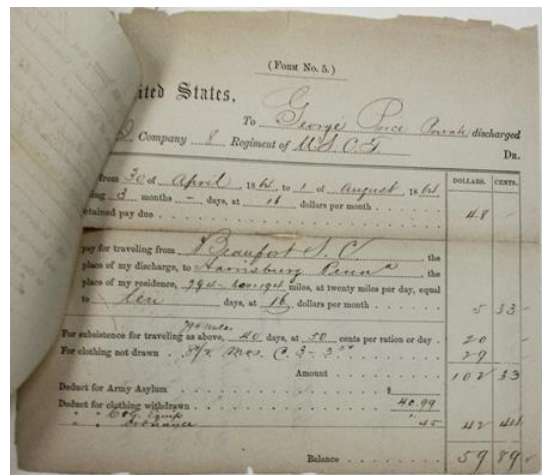 (Form No. 5.)
ited States,
To George Price Private discharged
Company 8 Regiment of U.S.C.T. Dr.
DOLLARS. CENTS.
from 30 of April, 1864, to 1 of August, 1864
ing 3 months — days, at 16 dollars per month
etained pay due 48 -
pay for traveling from Beaufort S. C. the
place of my discharge, to Harrisburg Penna the
place of my residence, 794 miles, at twenty miles per day, equal
to days, at 16 dollars per month 5 33
794 miles
For subsistence for traveling as above, 40 days, at 50 cents per ration or day 20 -
For clothing not drawn Mos. 29
Amount 102 33
Deduct for Army Asylum $
Deduct for clothing withdrawn 40.99
" " C & G Equip
" " Ordnance 45 42 44
Balance 59 89